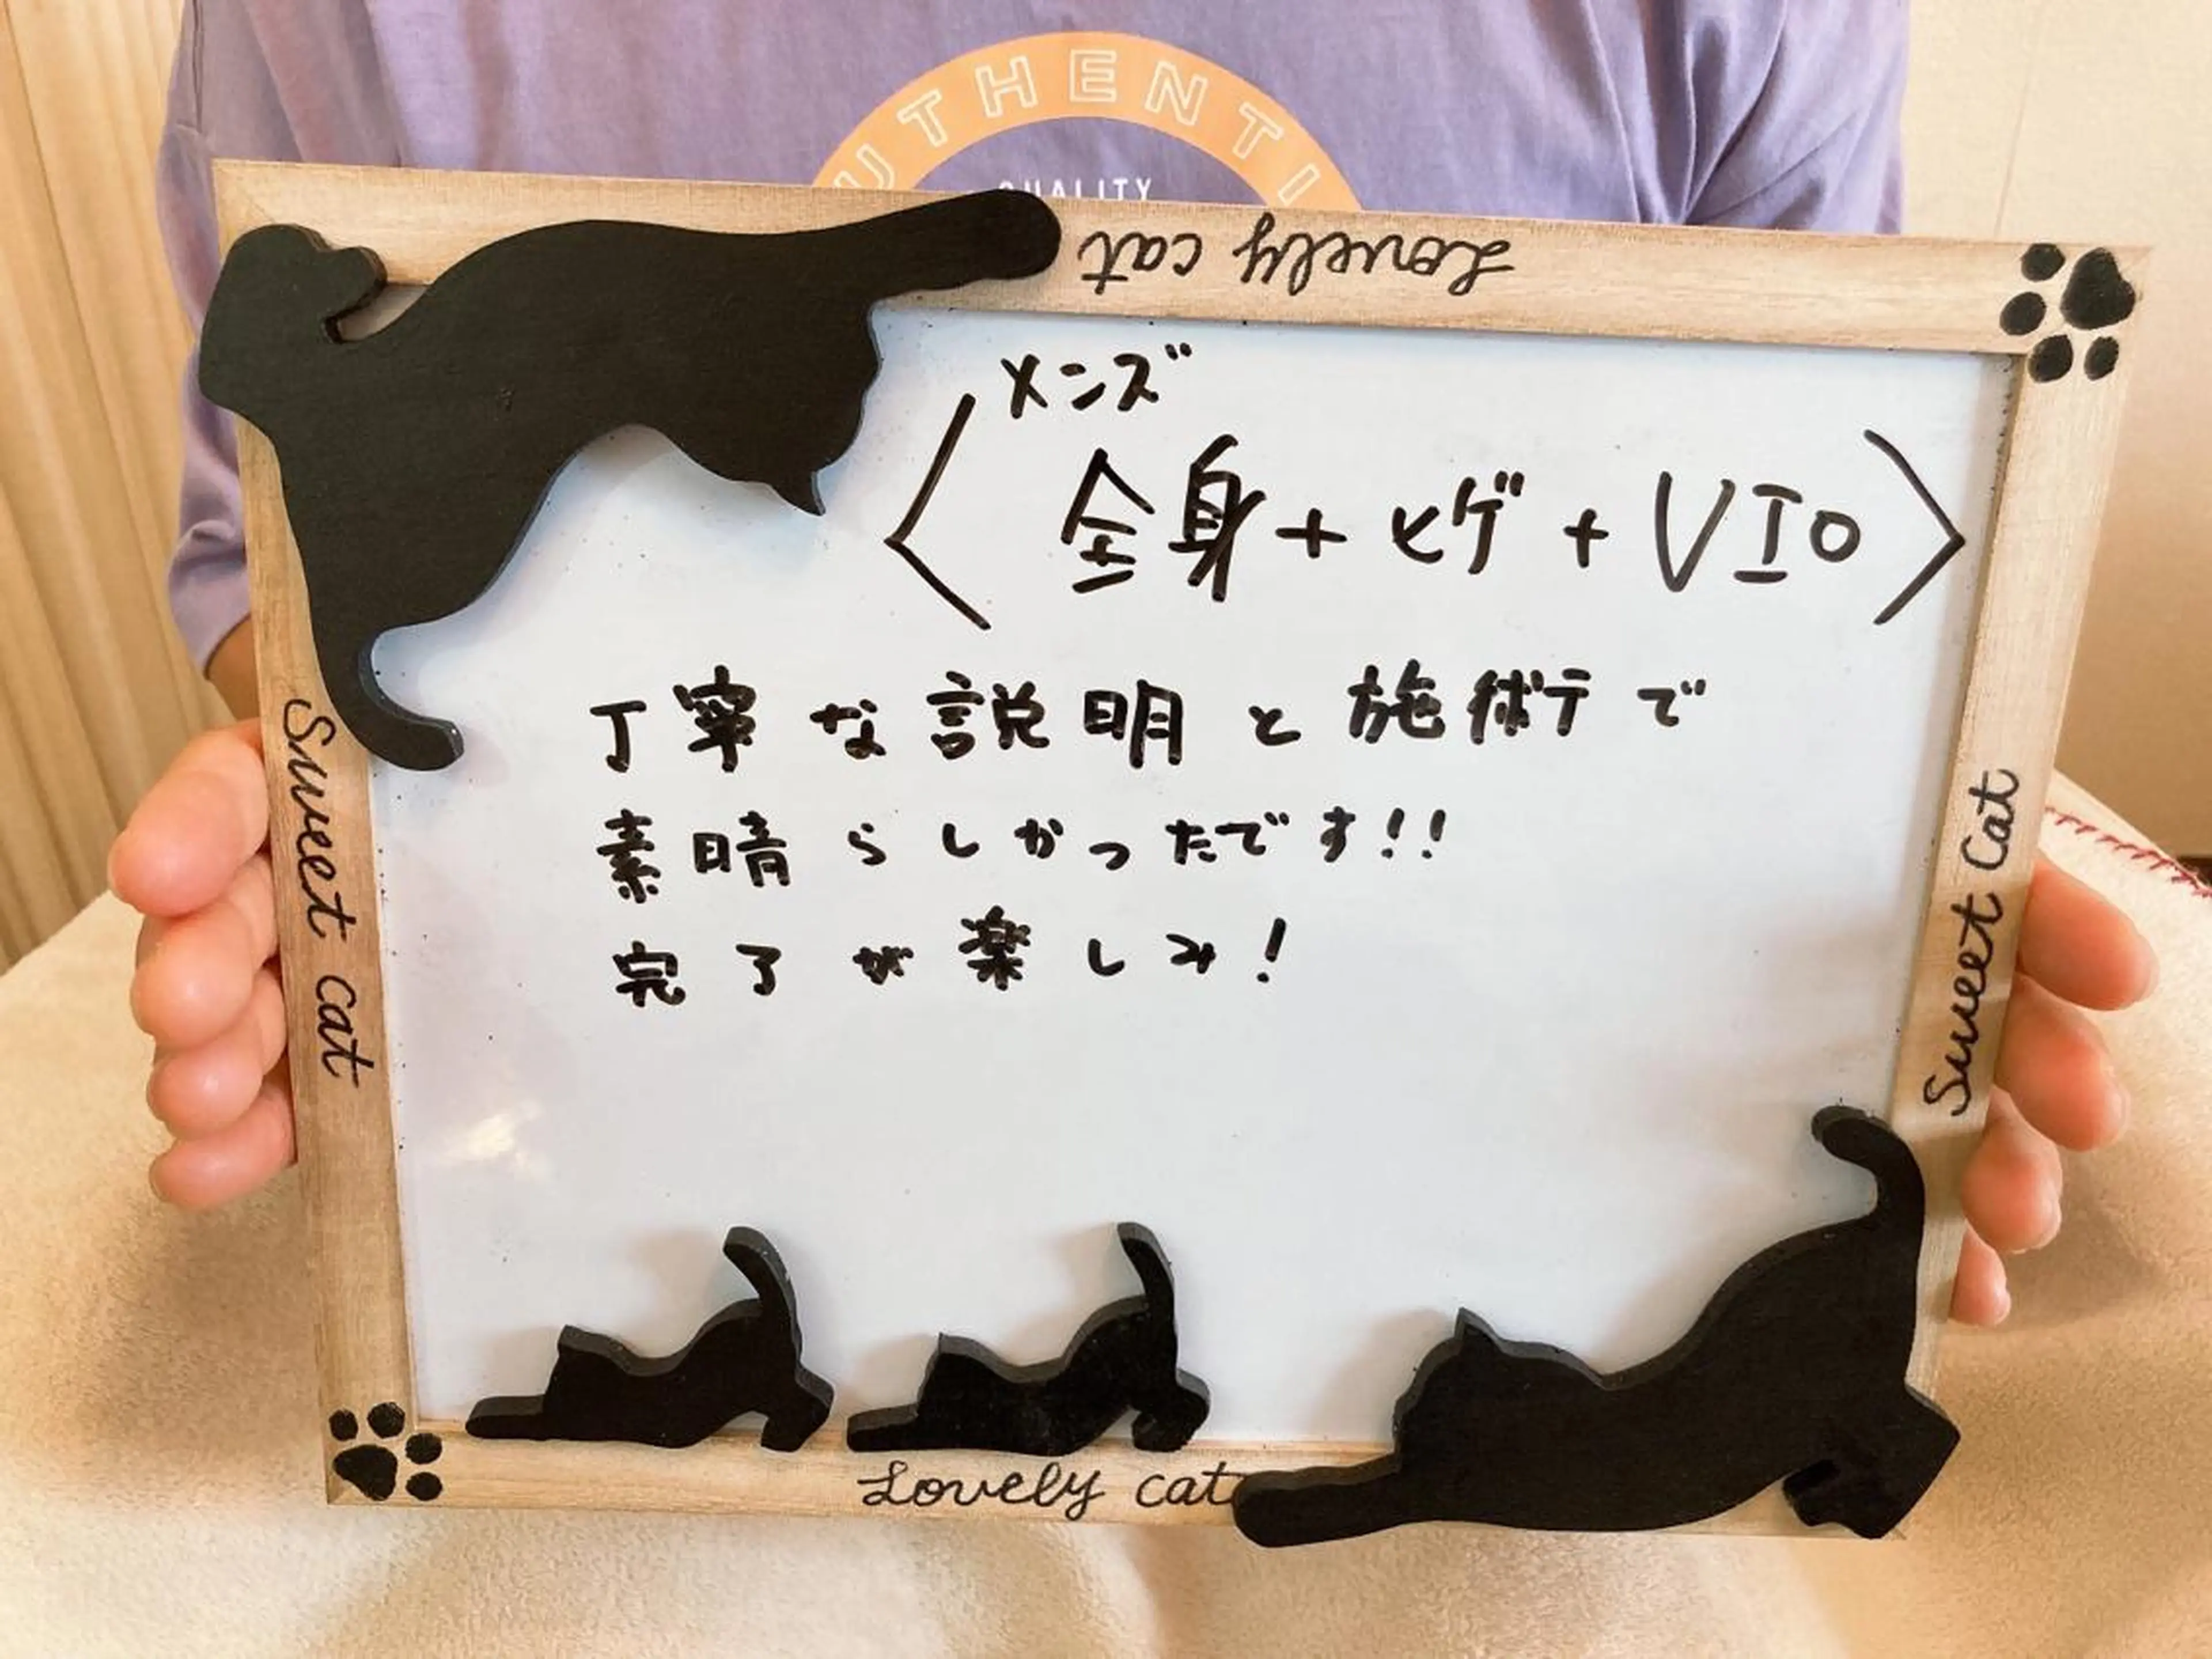 UTHENTI
QUALITY
Lovely cat
メンズ
〈全身+ヒゲ+VIO〉
丁寧な説明と施術で
素晴らしかったです!!
完了が楽しみ!
Sweet cat
Sweet Cat
Lovely cat